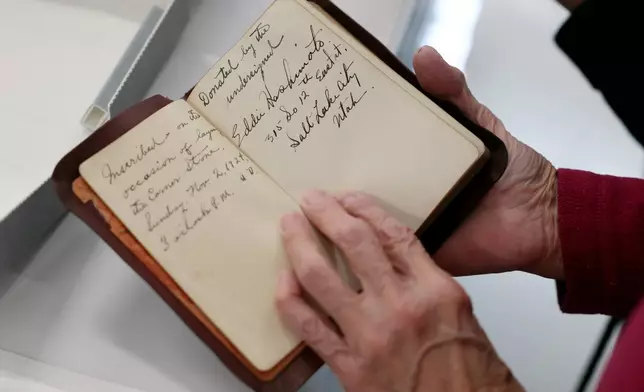 Inscribed on the
occasion of laying
the Corner Stone.
Sunday, Nov. 2, 1924,
3 o'clock P.M. A.D.
Donated by the
undersigned
Eddie Hashimoto
315 So 12th East st.
Salt Lake City
Utah.